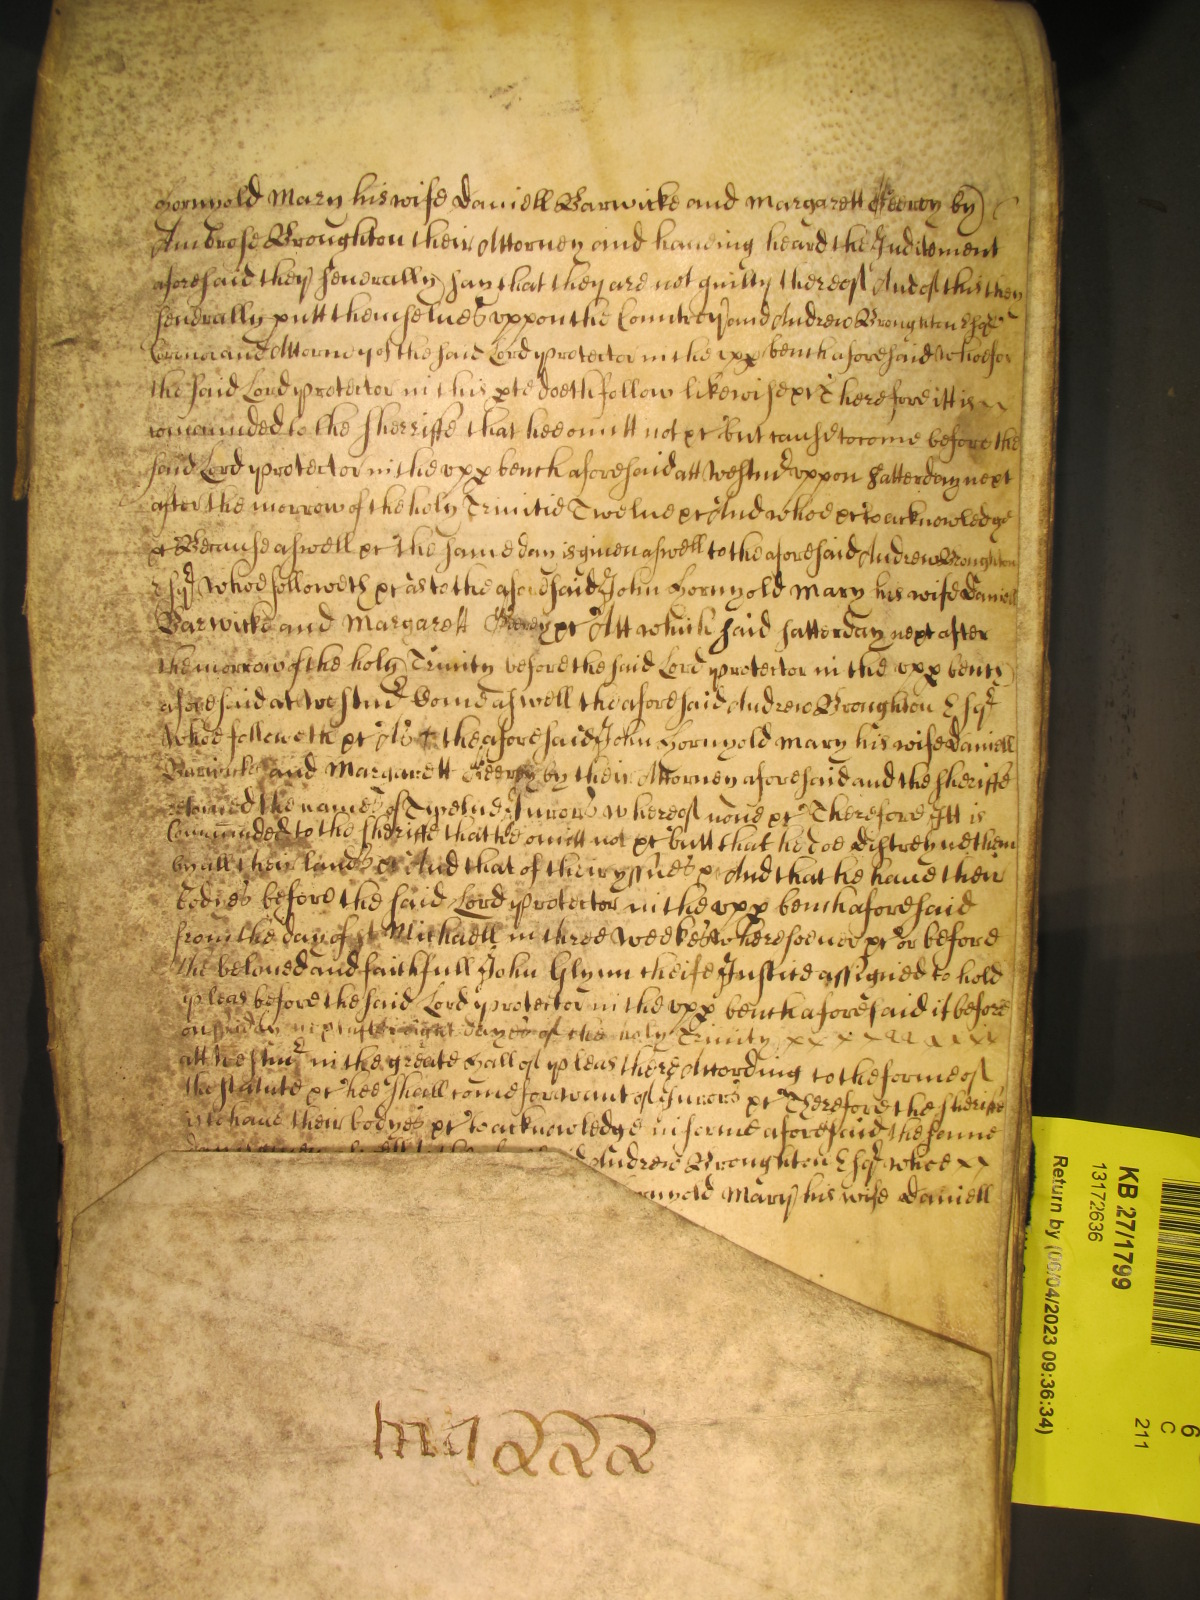 Hornyold Mary his wife Daniell Barwicke and Margarett by
Ambrose Broughton their Attorney and haueing heard the Inditement
aforesaid they seuerally say that they are not guilty thereof And of this they
seuerally putt themselues vppon the Countrey and Andrew Broughton Esqr
Coronor and Attorney of the said Lord Protector in the vpp bench aforesaid who for
the said Lord Protector in this pte doeth follow likewise &c Therefore itt is
comaunded to the Sherriffe that hee omitt not &c but cause to come before the
said Lord Protector in the vpp bench aforesaid att Westmr vppon Satterday next
after the morrow of the holy Trinitie Twelue &c And whoe &c to acknowledge
&c Because aswell &c the same day is giuen aswell to the aforesaid Andrew Broughton
Esqr whoe followeth &c as to the aforesaid John Hornyold Mary his wife Daniell
Barwicke and Margarett &c Att which said Satterday next after
the morrow of the holy Trinity before the said Lord Protector in the vpp bench
aforesaid at Westmr Come aswell the aforesaid Andrew Broughton Esqr
whoe followeth &c As the aforesaid John Hornyold Mary his wife Daniell
Barwicke and Margarett by their Attorney aforesaid and the Sheriffe
retorned the names of Twelue Jurors whereof none &c Therefore Itt is
Comaunded to the Sheriffe that hee omitt not &c butt that he doe distreyne them
by all their lands &c And that of their yssues &c And that he haue their
bodies before the said Lord Protector in the vpp bench aforesaid
from the day of st Michaell in three weekes wheresoeuer &c or before
the beloued and faithfull John Glynn cheife Justice assigned to hold
pleas before the said Lord Protector in the vpp bench aforesaid if before
on next after dayes of the holy Trinity
att Westmr in the greate Hall of pleas there According to the forme of
the statute &c hee shall come for want of Jurors &c Therefore the Sheriffe
is to haue their bodyes &c to acknowledge in forme aforesaid the same
Andrew Broughton Esqr whoe
Mary his wife Daniell
KB 27/1799
13172636
Return by (06/04/2023 09:36:34)
6
C
211